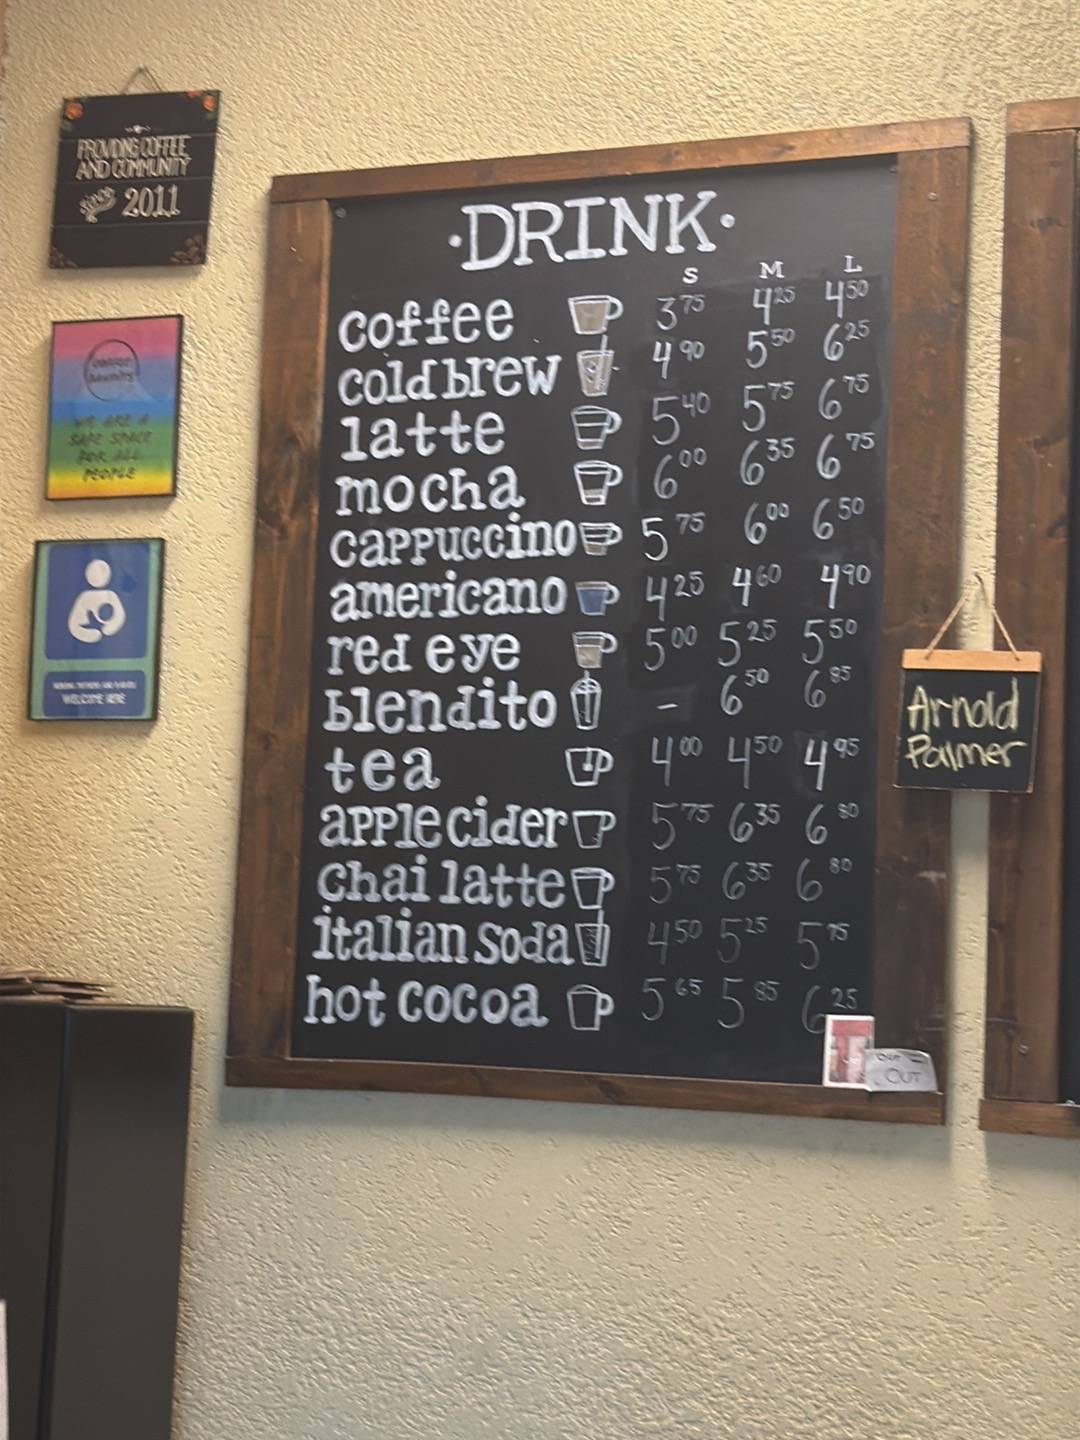 PROVIDING COFFEE
AND COMMUNITY
since 2011
WE ARE A
SAFE SPACE
FOR ALL
PEOPLE
WELCOME HERE
·DRINK·
S M L
coffee 3 75 4 25 4 50
cold brew 4 90 5 50 6 25
latte 5 40 5 75 6 75
mocha 6 00 6 35 6 75
cappuccino 5 75 6 00 6 50
americano 4 25 4 60 4 90
red eye 5 00 5 25 5 50
blendito - 6 50 6 85
tea 4 00 4 50 4 95
apple cider 5 75 6 35 6 80
chai latte 5 75 6 35 6 80
italian soda 4 50 5 25 5 75
hot cocoa 5 65 5 85 6 25
OUT
Arnold
Palmer